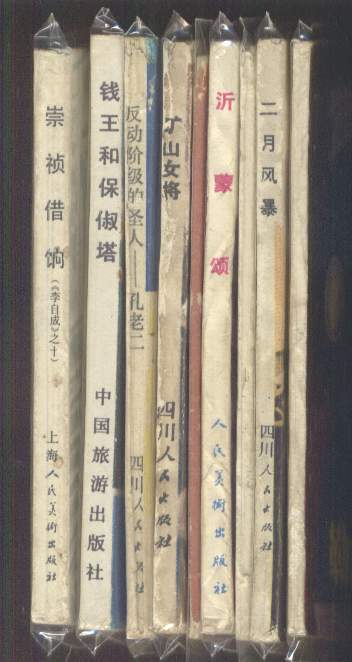 崇祯借饷
(《李自成》之十)
上海人民美術出版社
钱王和保俶塔
中国旅游出版社
反动阶级的圣人——孔老二
四川人民出版社
丫山女将
四川人民出版社
沂蒙颂
人民美術出版社
二月风暴
四川人民出版社